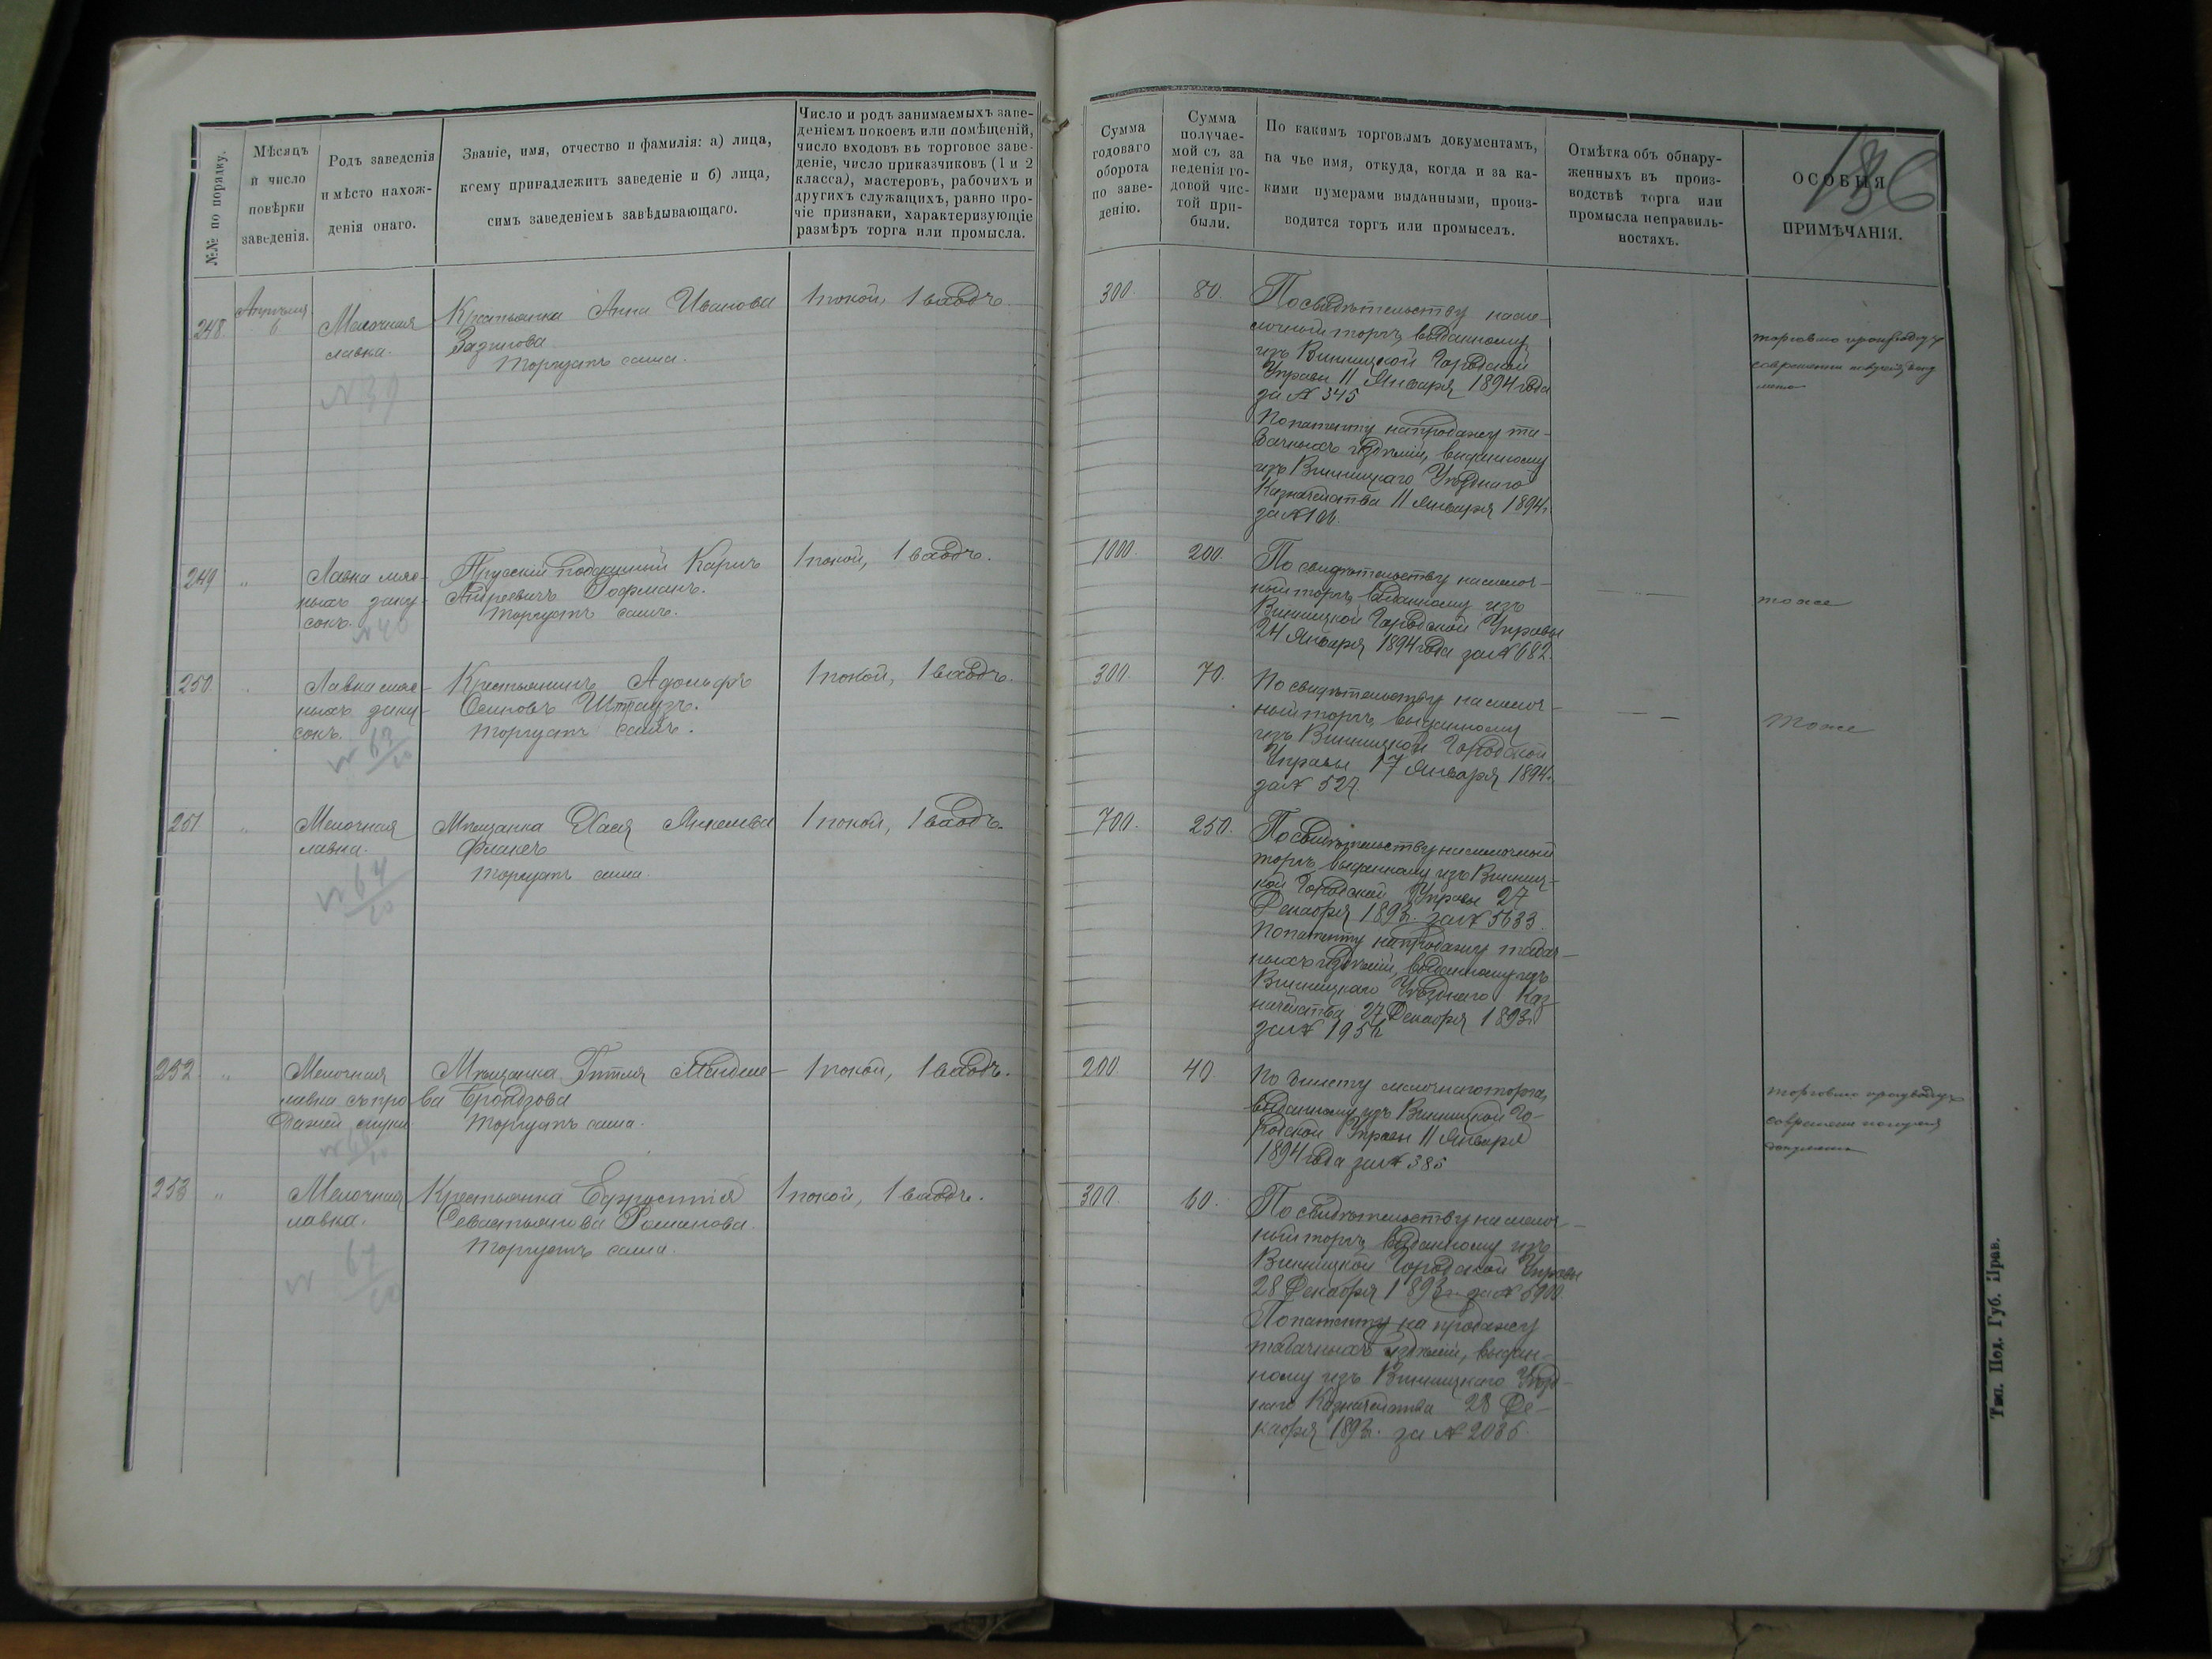 №№ по порядку.
Мѣсяцъ
и число
повѣрки
заведенія.
Родъ заведенія
и мѣсто нахож-
денія онаго.
Званіе, имя, отчество и фамилія: а) лица,
коему принадлежитъ заведеніе и б) лица,
симъ заведеніемъ завѣдывающаго.
Число и родъ занимаемыхъ заве-
деніемъ покоевъ или помѣщеній,
число входовъ въ торговое заве-
деніе, число приказчиковъ (1 и 2
класса), мастеровъ, рабочихъ и
другихъ служащихъ, равно про-
чіе признаки, характеризующіе
размѣръ торга или промысла.
Сумма
годоваго
оборота
по заве-
денію.
Сумма
получае-
мой съ за
веденія го-
довой чис-
той при-
были.
По какимъ торговымъ документамъ,
на чье имя, откуда, когда и за ка-
кими нумерами выданными, произ-
водится торгъ или промыселъ.
Отмѣтка объ обнару-
женныхъ въ произ-
водствѣ торга или
промысла неправиль-
ностяхъ.
ОСОБЫЯ
ПРИМѢЧАНІЯ.
248
Апрѣля
6
Мелочная
лавка.
N 39
Крестьянка Анна Иванова
Торгуетъ сама.
1 покой, 1 входъ.
300.
80.
По свидѣтельству на ме-
лочный торгъ, выданному
изъ Винницкой Городской
Управы 11 Января 1894 года
за № 345
По патенту на продажу та-
бачныхъ издѣлій, выданному
изъ Винницкаго Уѣзднаго
Казначейства 11 Января 1894 г.
за №
торговлю производитъ
249
"
Лавка мяс-
ныхъ заку-
сокъ.
N 40
Прусскій подданный Карлъ
Андреевичъ Гофманъ.
Торгуетъ самъ.
1 покой, 1 входъ.
1000.
200.
По свидѣтельству на мелоч-
ный торгъ, выданному изъ
Винницкой Городской Управы
24 Января 1894 года за № 682.
тоже
250
"
Лавка мяс-
ныхъ заку-
сокъ.
N 63/60
Крестьянинъ Адольфъ
Осиповъ Штраузъ.
Торгуетъ самъ.
1 покой, 1 входъ.
300.
70.
По свидѣтельству на мелоч-
ный торгъ, выданному
изъ Винницкой Городской
Управы 17 Января 1894 г.
за № 527.
Тоже
251
"
Мелочная
лавка.
N 64/60
Мѣщанка Хася Янкелева
Торгуетъ сама.
1 покой, 1 входъ.
700.
250.
По свидѣтельству на мелочный
торгъ, выданному изъ Винниц-
кой Городской Управы 27
Декабря 1893 г. за № 5633.
По патенту на продажу табач-
ныхъ издѣлій, выданному изъ
Винницкаго Уѣзднаго Каз-
начейства 27 Декабря 1893 г.
за №
252
"
Мелочная
лавка съ про
дажей муки
Мѣщанка Гитля Менделе-
ва Бродзова
Торгуетъ сама.
1 покой, 1 входъ.
200
40
По билету мелочнаго торга,
выданному изъ Винницкой Го-
родской Управы 11 Января
1894 года за № 385
торговлю производитъ
253
"
Мелочная
лавка.
N 67/60
Крестьянка Ефросинія
Севастьянова Романова.
Торгуетъ сама.
1 покой, 1 входъ.
300.
60.
По свидѣтельству на мелоч-
ный торгъ, выданному изъ
Винницкой Городской Управы
28 Декабря 1893 г. за № 5900
По патенту на продажу
табачныхъ издѣлій, выдан-
ному изъ Винницкаго Уѣзд-
наго Казначейства 28 Де-
кабря 1893 г. за № 2036.
Тип. Под. Губ. Прав.